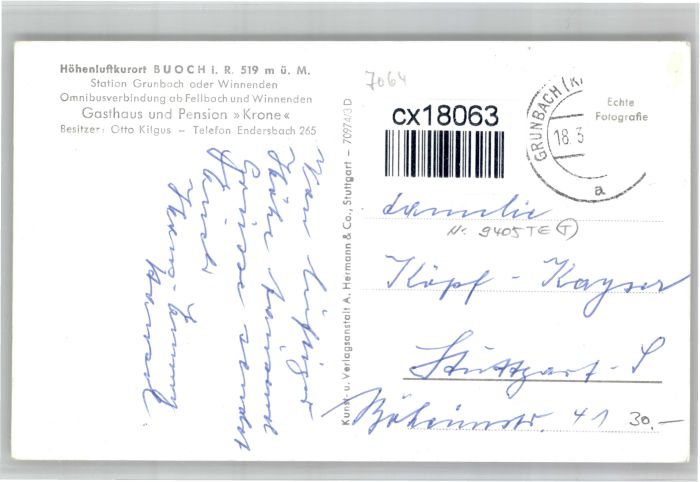 Höhenluftkurort BUOCH i. R. 519 m ü. M.
Station Grunbach oder Winnenden
Omnibusverbindung ab Fellbach und Winnenden
Gasthaus und Pension »Krone«
Besitzer: Otto Kilgus – Telefon Endersbach 265
Von luftiger
Höhe
Grüsse sendet
Kunst- u. Verlagsanstalt A. Hermann & Co., Stuttgart – 70974/3 D
7064
cx18063
GRUNBACH (R
18.3
a
Echte
Fotografie
Familie
Nr. 9405 TE T
Köpf - Kayser
Stuttgart - S
Böheimstr. 41
30.–